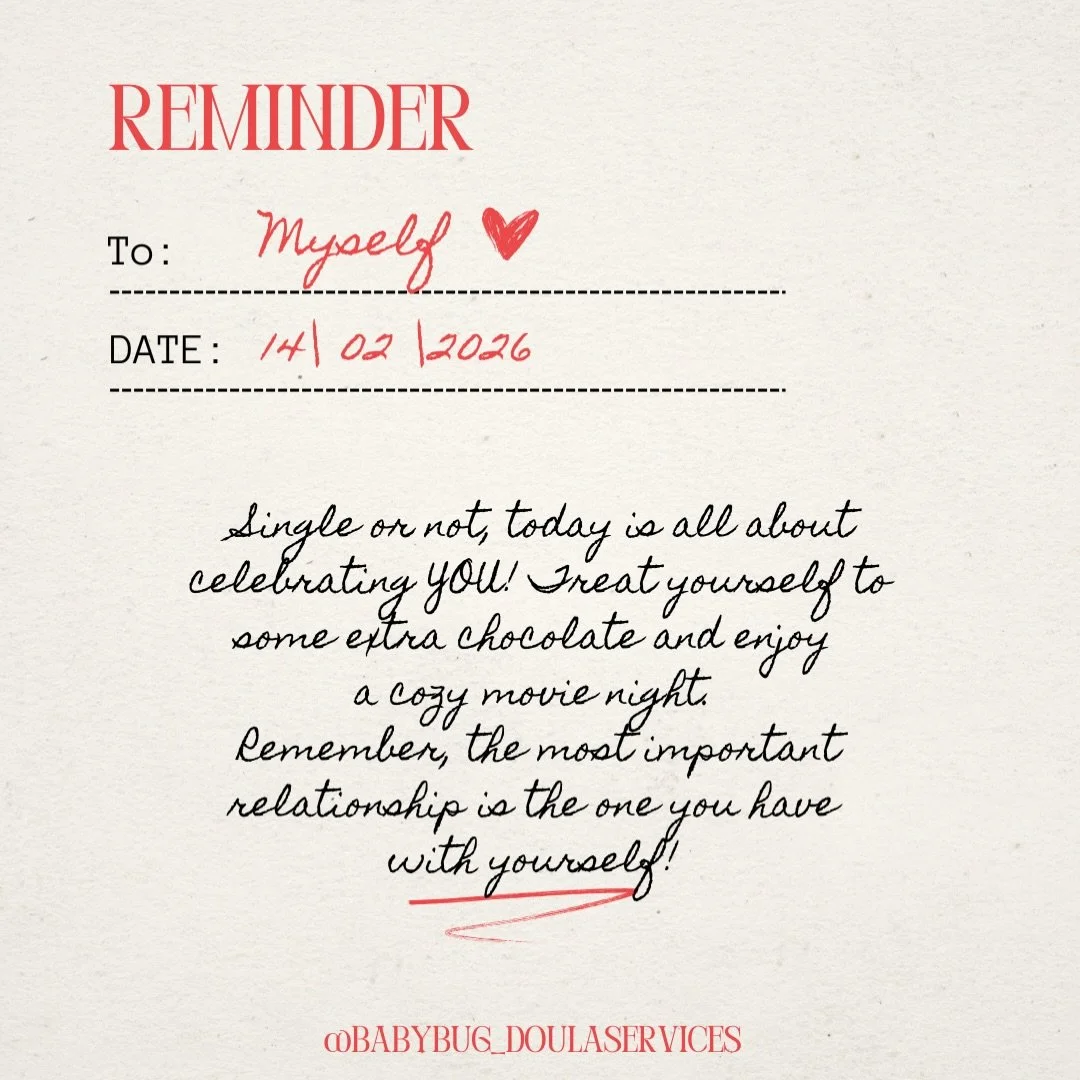 REMINDER
To: Myself
DATE: 14| 02 |2026
Single or not, today is all about
celebrating YOU! Treat yourself to
some extra chocolate and enjoy
a cozy movie night.
Remember, the most important
relationship is the one you have
with yourself!
@BABYBUG_DOULASERVICES